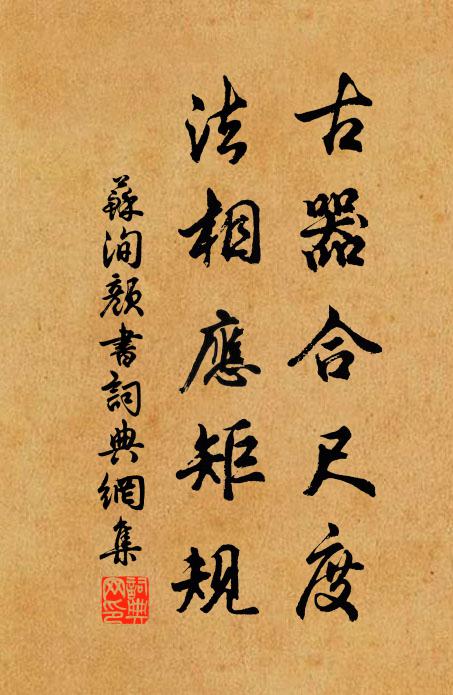 古器合尺度
法相應矩規
蘇洵顏書詞典網集
詞典網印